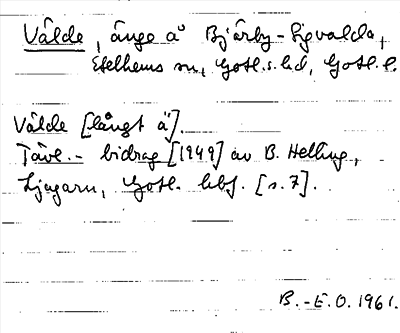 Välde, änge å Bjärby-Sigvalda,
Etelhems sn, Gotl. s. hd, Gotl. l.
Välde [långt ä].
Tävl.-bidrag [1949] av B. Helling,
Ljugarn, Gotl. hbf. [s. 7].
B.-E.O. 1961.